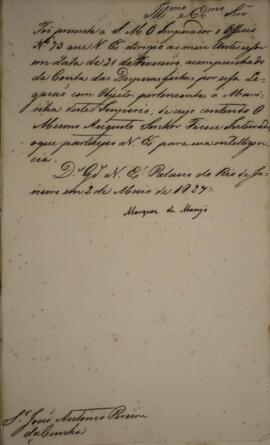 Illmo e Exmo Snr
Foi presente a S. M. O Imperador o Officio
No 73 que V. Exa dirigio ao meu Antecessor
em data de 21 de Fevereiro, acompanhado
da Conta das Despezas feitas por essa Le-
gação com Objectos pertencentes á Mari-
nha deste Imperio, de cujo contendo O
Mesmo Augusto Senhor Ficou Inteirado
o que participo a V. Exa para sua intelligen-
cia.
Ds Gde a V. Exa Palacio do Rio de Ja-
neiro em 2 de Maio de 1827.
Marquez de Maceyó
Sr José Antonio Pereira
da Cunha